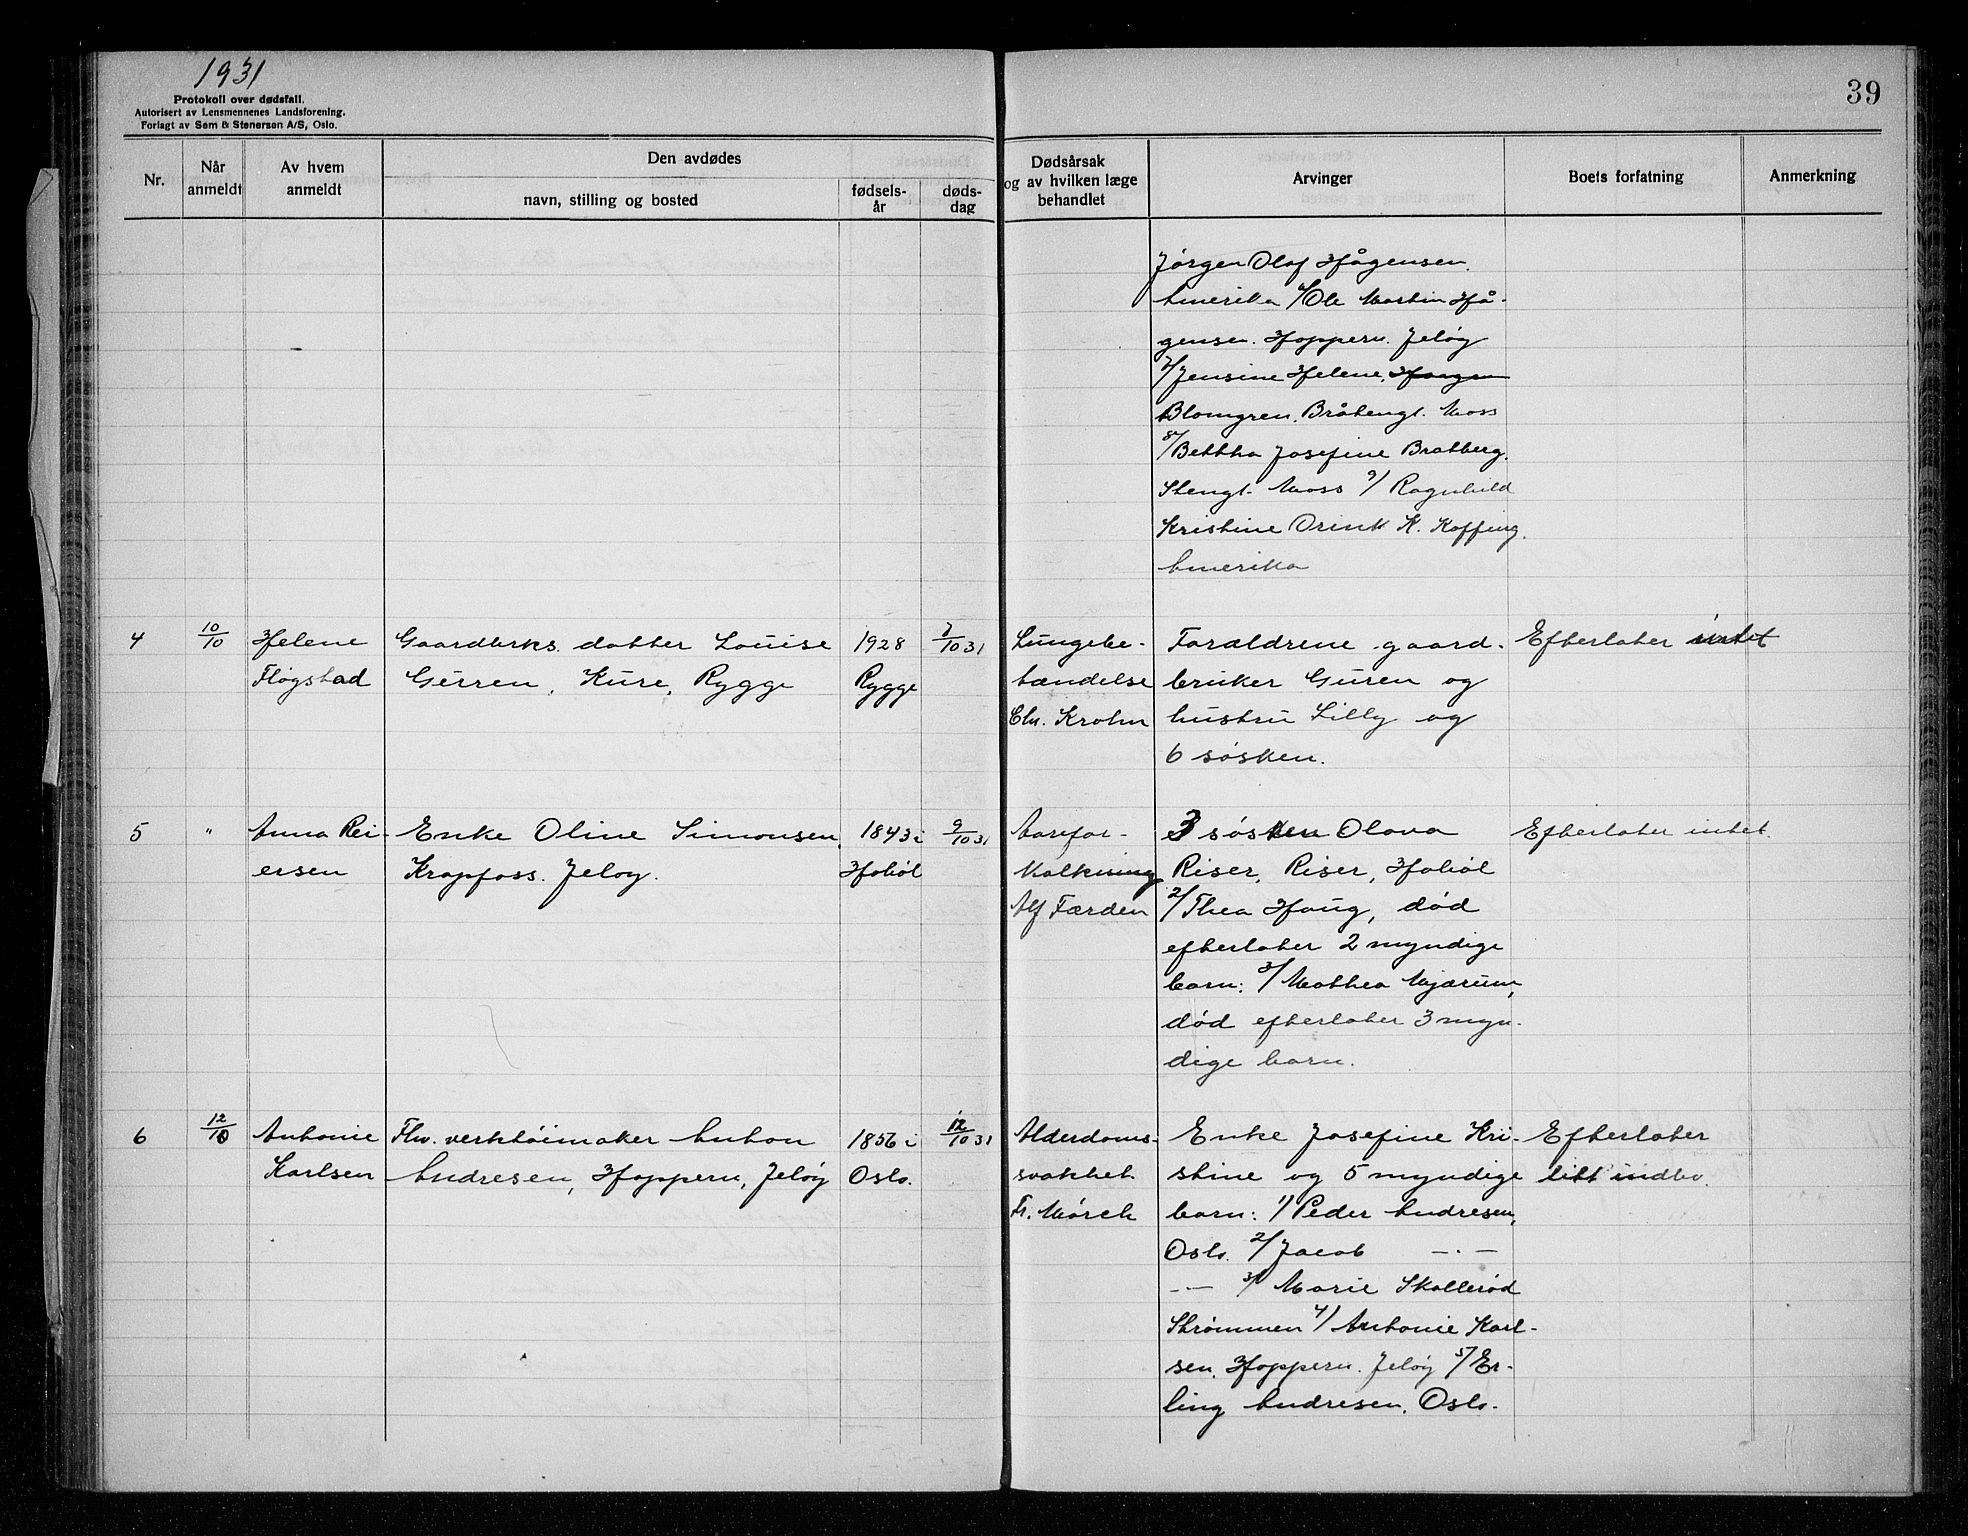 1931
Protokoll over dødsfall.
Autorisert av Lensmennenes Landsforening.
Forlagt av Sem & Stenersen A/S, Oslo.
39
Nr.
Når anmeldt
Av hvem anmeldt
Den avdødes
navn, stilling og bosted
fødsels-år
døds-dag
Dødsårsak og av hvilken læge behandlet
Arvinger
Boets forfatning
Anmerkning
Jørgen Olaf Hågensen.
Amerika 6/ Ole Martin Hå-
gensen. Hoppern. Jeløy
7/ Jensine Helene,
Blomgren. Bråtengt. Moss
8/ Beththa Josefine Bratberg.
Stengt. Moss 9/ Ragnhild
Kristine Orink K. Koffing.
Amerika
4
10/10
Helene
Fløgstad
Gaardbrks. datter Louise
Gürren, Kure, Rygge
1928
Rygge
7/10 31
Lungebe-
tændelse
Chr. Krohn
Foræld­rene gaard-
bruker Guren og
hustru Lilly og
6 søsken.
Efterlater intet
5
"
Anna Rei-
ersen
Enke Oline Simonsen,
Krapfoss. Jeløy.
1843 i
Hobøl
9/10 31
Aarefor-
kalkning
Alf Færden
3 søsken Olava
Riser, Riser, Hobøl
2/ Thea Haug, død
efterlater 2 myndige
barn: 3/ Mathea Mjærum,
død efterlater 3 myn-
dige barn.
Efterlater intet.
6
12/10
Antonie
Karlsen
Fhv. verktøimaker Anton
Andresen, Hoppern, Jeløy
1856 i
Oslo.
12/10 31
Alderdoms-
svakhet.
Fr. Mørch
Enke Josefine Kri-
stine og 5 myndige
barn: 1) Peder Andresen,
Oslo. 2/ Jacob —·—
—·— 3/ Marie Skollerød
Strømmen 4/ Antonie Karl-
sen, Hoppern. Jeløy 5/ Er-
ling Andresen. Oslo.
Efterlater
litt indbo.